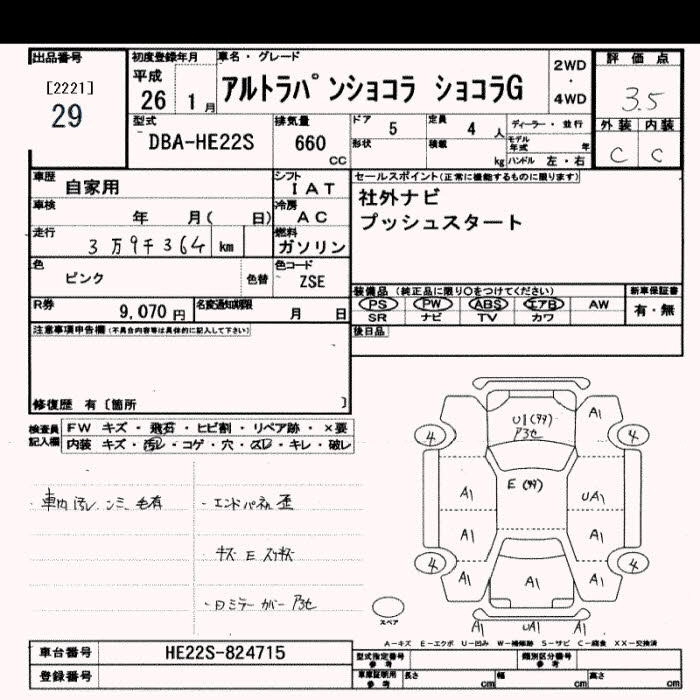 出品番号
[2221]
29
初度登録年月
平成
26 1月
車名・グレード
アルトラパンショコラ ショコラG
2WD
・
4WD
評価点
3.5
外装 内装
C C
型式
DBA-HE22S
排気量
660
CC
ドア 5
定員 4 人
形状
積載 kg
ディーラー・並行
モデル年式 年
ハンドル 左・右
車歴 自家用
シフト IAT
車検 年 月( 日)
冷房 AC
走行 3万9千364 km
燃料 ガソリン
色 ピンク 色替
色コード ZSE
R券 9,070円
名変通知期限 月 日
セールスポイント(正常に機能するものに限ります)
社外ナビ
プッシュスタート
装備品 (純正品に限り○をつけてください)
PS PW ABS エアB AW
SR ナビ TV カワ
新車保証書
有・無
後日品
注意事項申告欄(不具合内容等は具体的に記入して下さい)
修復歴 有〔箇所 〕
検査員記入欄
FW キズ・飛石・ヒビ割・リペア跡・×要
内装 キズ・汚レ・コゲ・穴・スレ・キレ・破レ
・車内汚レ シミ 毛有
・エンドパネル歪
・キズ E スリキズ
A1
A1
A1
A1
UA1
A1
A1
A1
A1 UA1 A1
4
4
4
4
スペア
A-キズ E-エクボ U-凹み W-補修跡 S-サビ C-腐食 XX-交換済
車台番号 HE22S-824715
登録番号
型式指定番号 参考
類別区分番号 参考
車庫証明用 参考 長さ cm 幅 cm 高さ cm